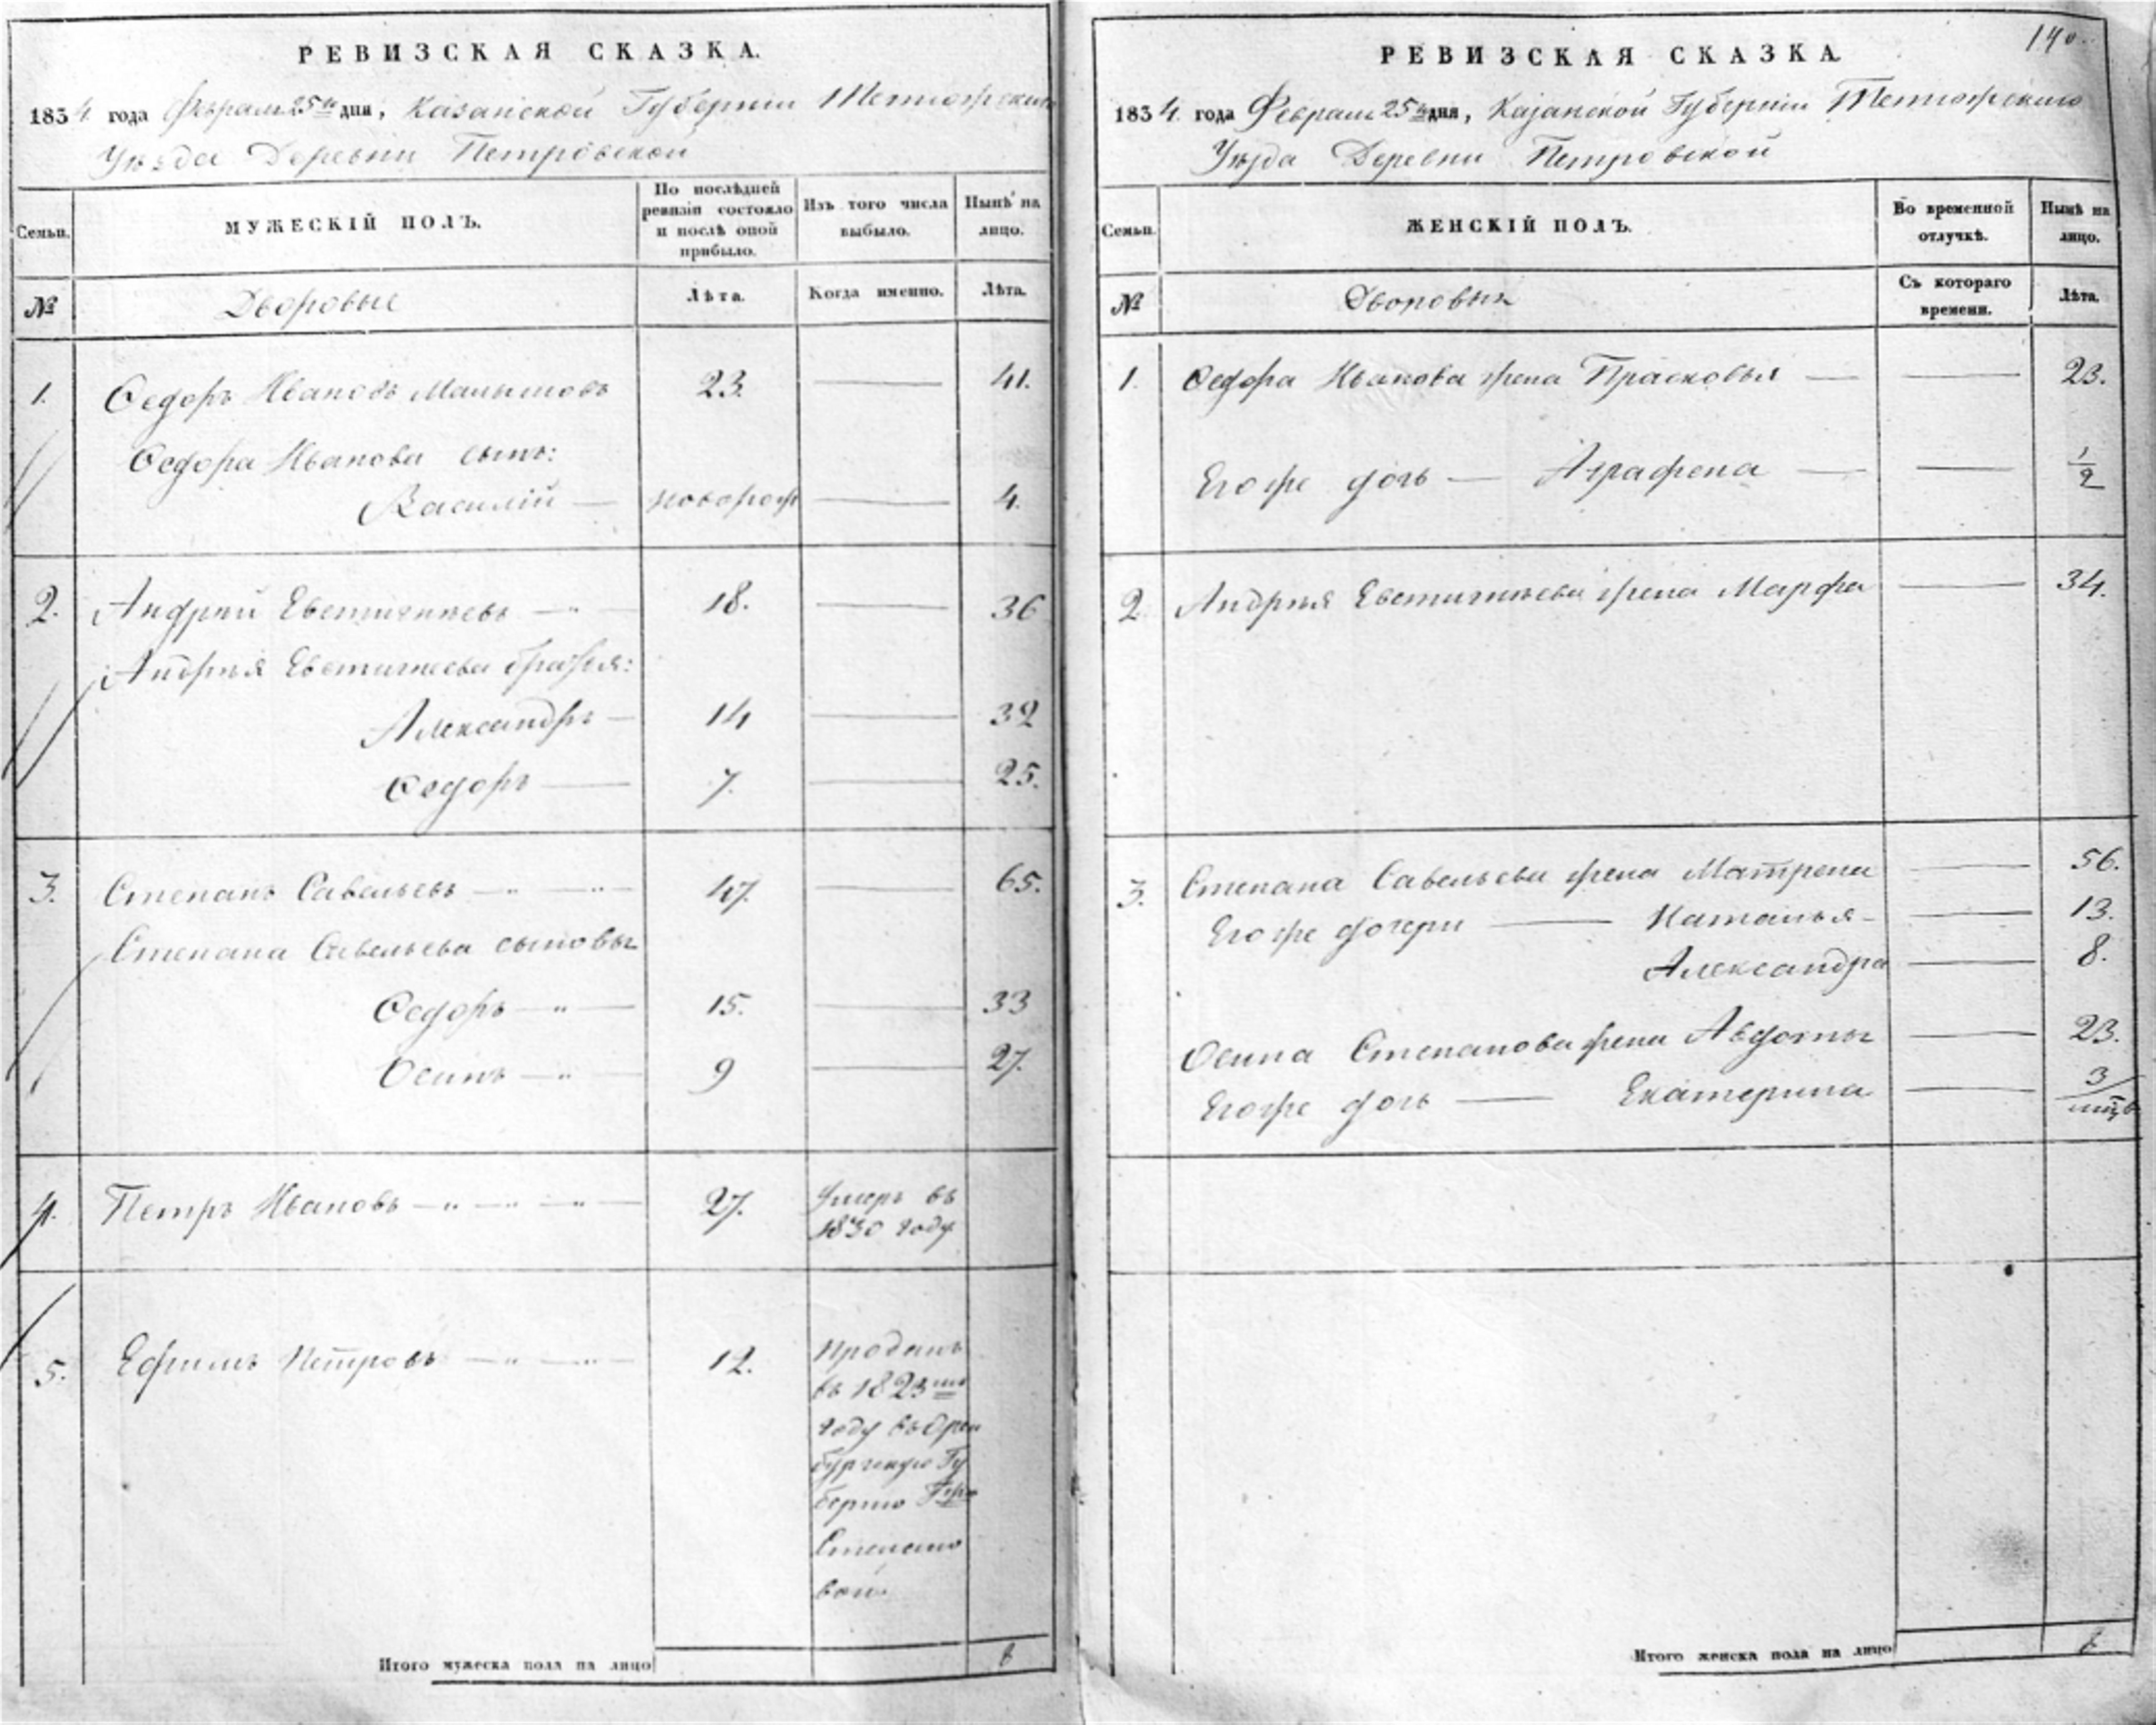 РЕВИЗСКАЯ СКАЗКА.
1834 года Февраля 25го дня, Казанской Губернiи Тетюжскаго
Уѣзда Деревни Петровской
Семьи.
МУЖЕСКIЙ ПОЛЪ.
По послѣдней
ревизiи состояло
и послѣ оной
прибыло.
Изъ того числа
выбыло.
Нынѣ на
лицо.
№
Дворовые
Лѣта.
Когда именно.
Лѣта.
1. Ѳедоръ Ивановъ 23. — 41.
Ѳедора Иванова сынъ:
Василiй — новорож — 4.
2. Андрей Евстигнѣевъ — 18. — 36
Андрѣя Евстигнеева братья:
Александръ — 14 — 32
Ѳедоръ — 7. — 25.
3. Степанъ Савельевъ — 47. — 65.
Степана Савельева сыновья
Ѳедоръ — 15. — 33
Осипъ — 9 — 27.
4. Петръ Ивановъ — 27. Умеръ въ
1830 году
5. Ефимъ Петровъ — 12. Проданъ
въ 1823мъ
году въ Орен
бургскую Гу
бернiю Гжѣ
Степано
вой
Итого мужеска пола на лицо 8
140.
РЕВИЗСКАЯ СКАЗКА.
1834 года Февраля 25го дня, Казанской Губернiи Тетюжскаго
Уѣзда Деревни Петровской
Семьи.
ЖЕНСКIЙ ПОЛЪ.
Во временной
отлучкѣ.
Нынѣ на
лицо.
№
Дворовыя
Съ котораго
времени.
Лѣта.
1. Ѳедора Иванова жена Прасковья — — 23.
Его же дочь — Аграфена — — 1/2
2. Андрѣя Евстигнѣева жена Марфа — 34.
3. Степана Савельева жена Матрена — 56.
Его же дочери — Наталья — 13.
Александра — 8.
Осипа Степанова жена Авдотья — 23.
Его же дочь — Екатерина — 3/мцѣв
Итого женска пола на лицо 8